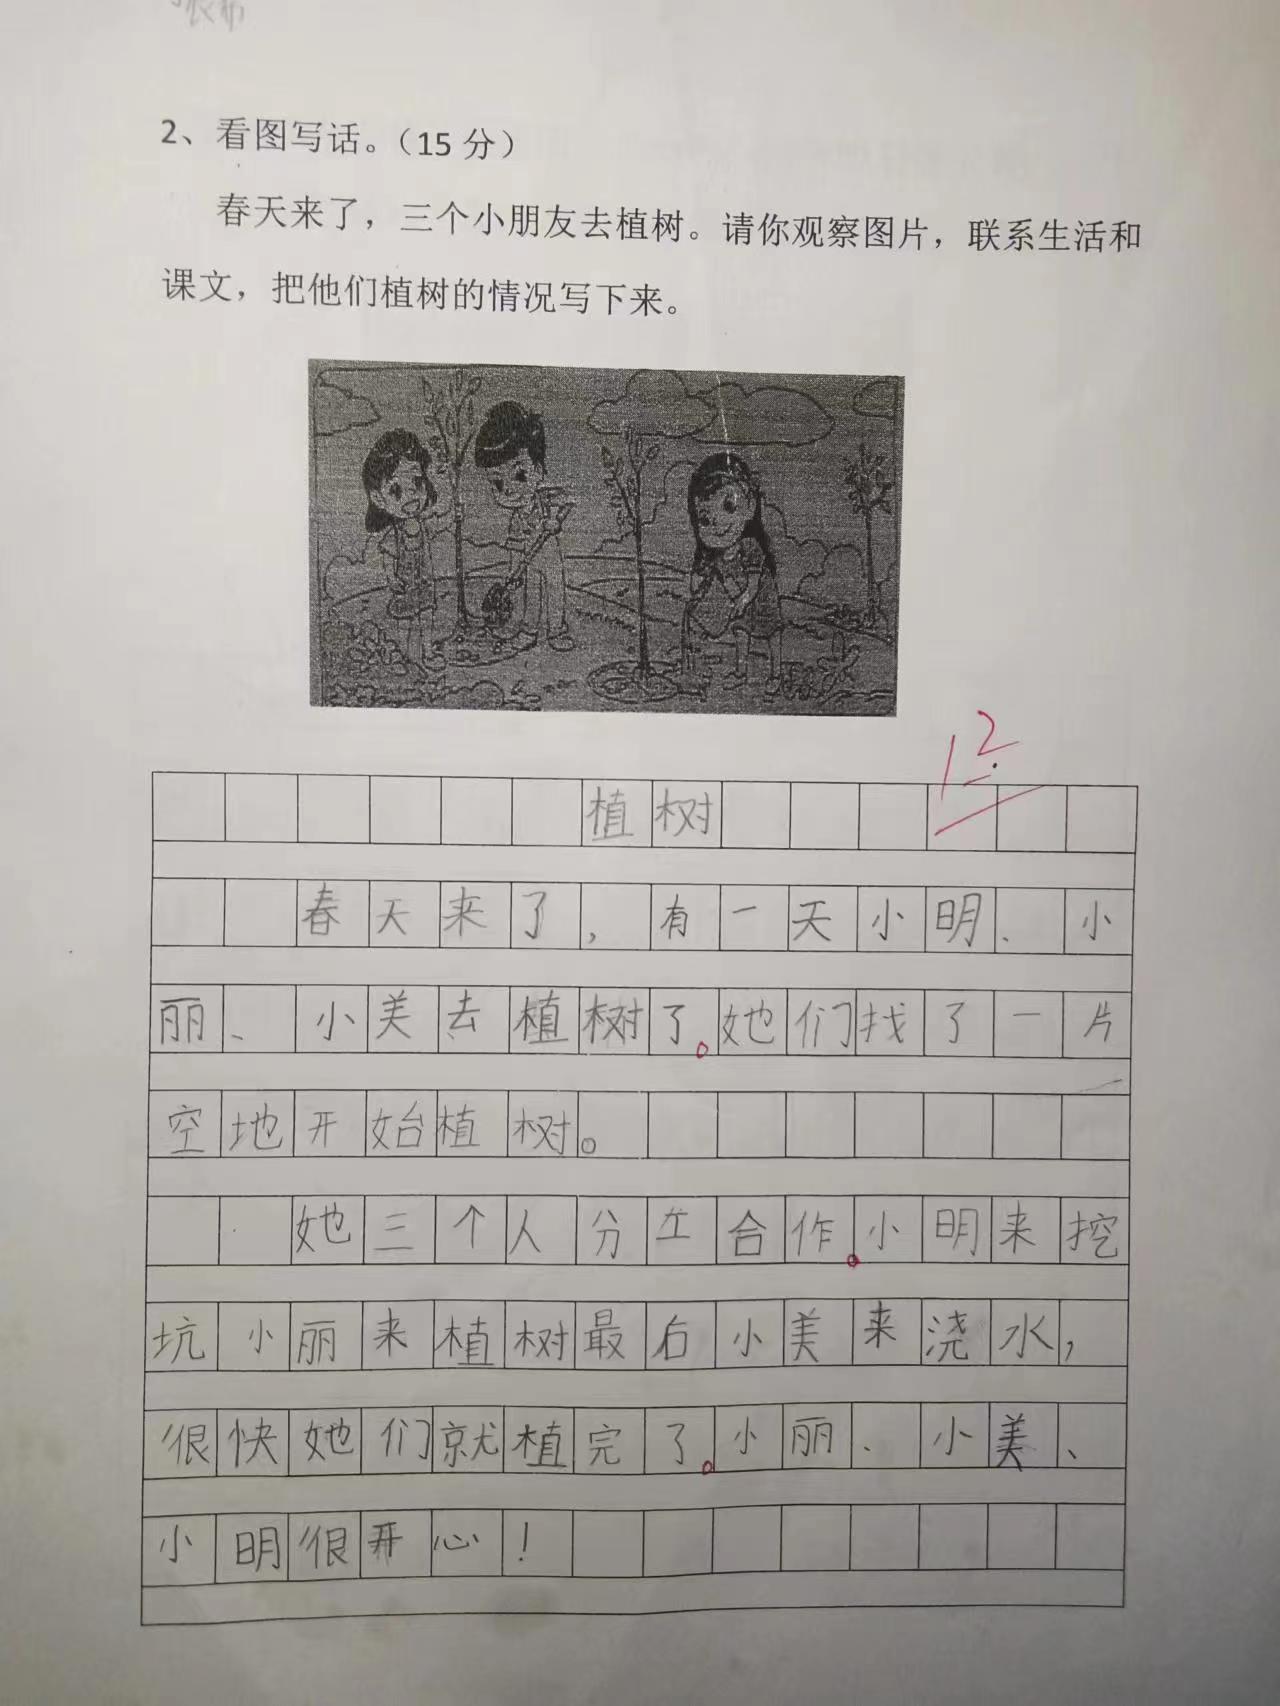 2、看图写话。（15 分）
春天来了，三个小朋友去植树。请你观察图片，联系生活和
课文，把他们植树的情况写下来。
12
植树
春天来了，有一天小明、小
丽、小美去植树了。她们找了一片
空地开始植树。
她三个人分工合作。小明来挖
坑小丽来植树最后小美来浇水，
很快她们就植完了。小丽、小美、
小明很开心！